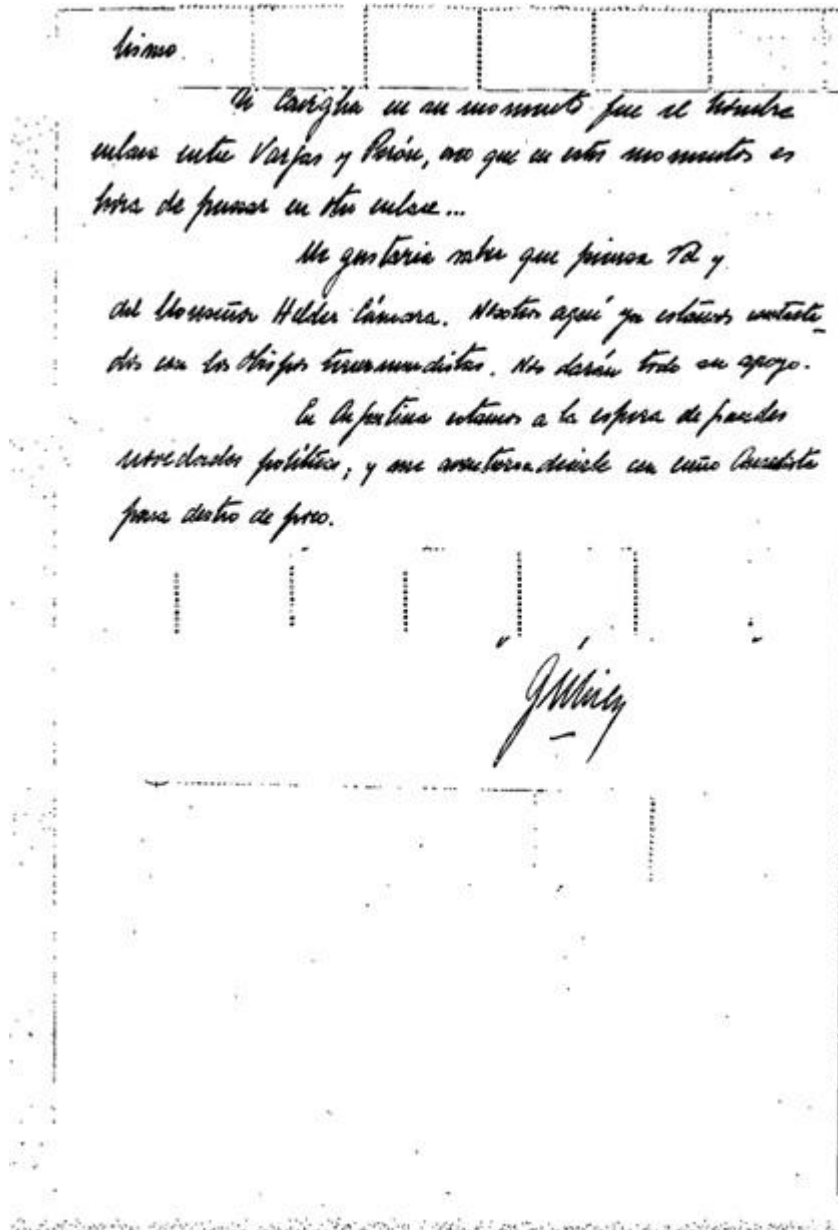 lismo.
Si Caviglia en su momento fue el hombre
enlace entre Vargas y Perón, creo que en estos momentos es
hora de pensar en otro enlace...
Me gustaria saber que piensa Vd y
del Monseñor Helder Cámara. Nosotros aquí ya estamos contacta-
dos con los Obispos tercermundistas. Nos darán todo su apoyo.
En Argentina estamos a la espera de grandes
novedades políticas, y me aventuro a decirle con cuño
para dentro de poco.